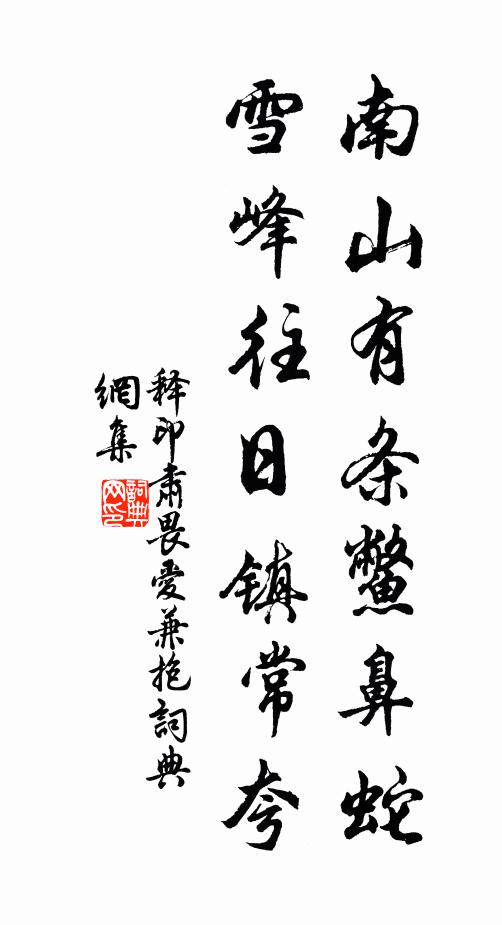 南山有条鳖鼻蛇
雪峰往日镇常夸
释印肃畏爱兼抱詞典
網集
詞典
网印